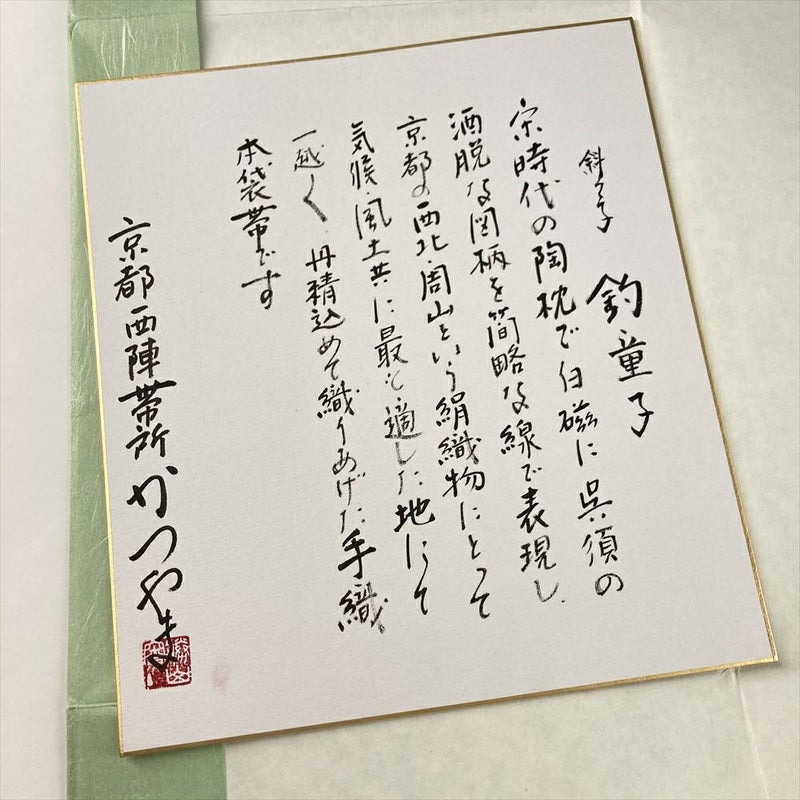 斜子
釣童子
宋時代の陶枕で白磁に呉須の
洒脱な図柄を簡略な線で表現し、
京都の西北・周山という絹織物にとって
気候・風土共に最も適した地にて
一越〱丹精込めて織りあげた手織
本袋帯です
京都西陣帯所かつやま